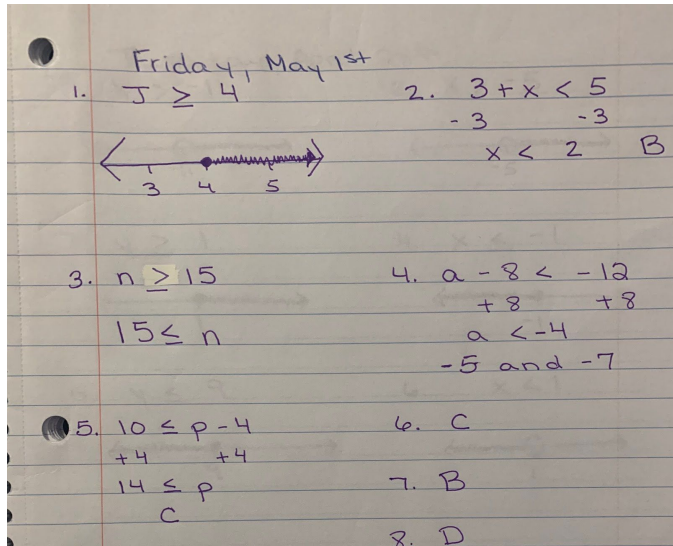 Friday, May 1st
1. J ≥ 4
3 4 5
2. 3 + x < 5
- 3 - 3
x < 2 B
3. n ≥ 15
15 ≤ n
4. a - 8 < - 12
+ 8 + 8
a < -4
-5 and -7
5. 10 ≤ p - 4
+4 +4
14 ≤ p
C
6. C
7. B
8. D